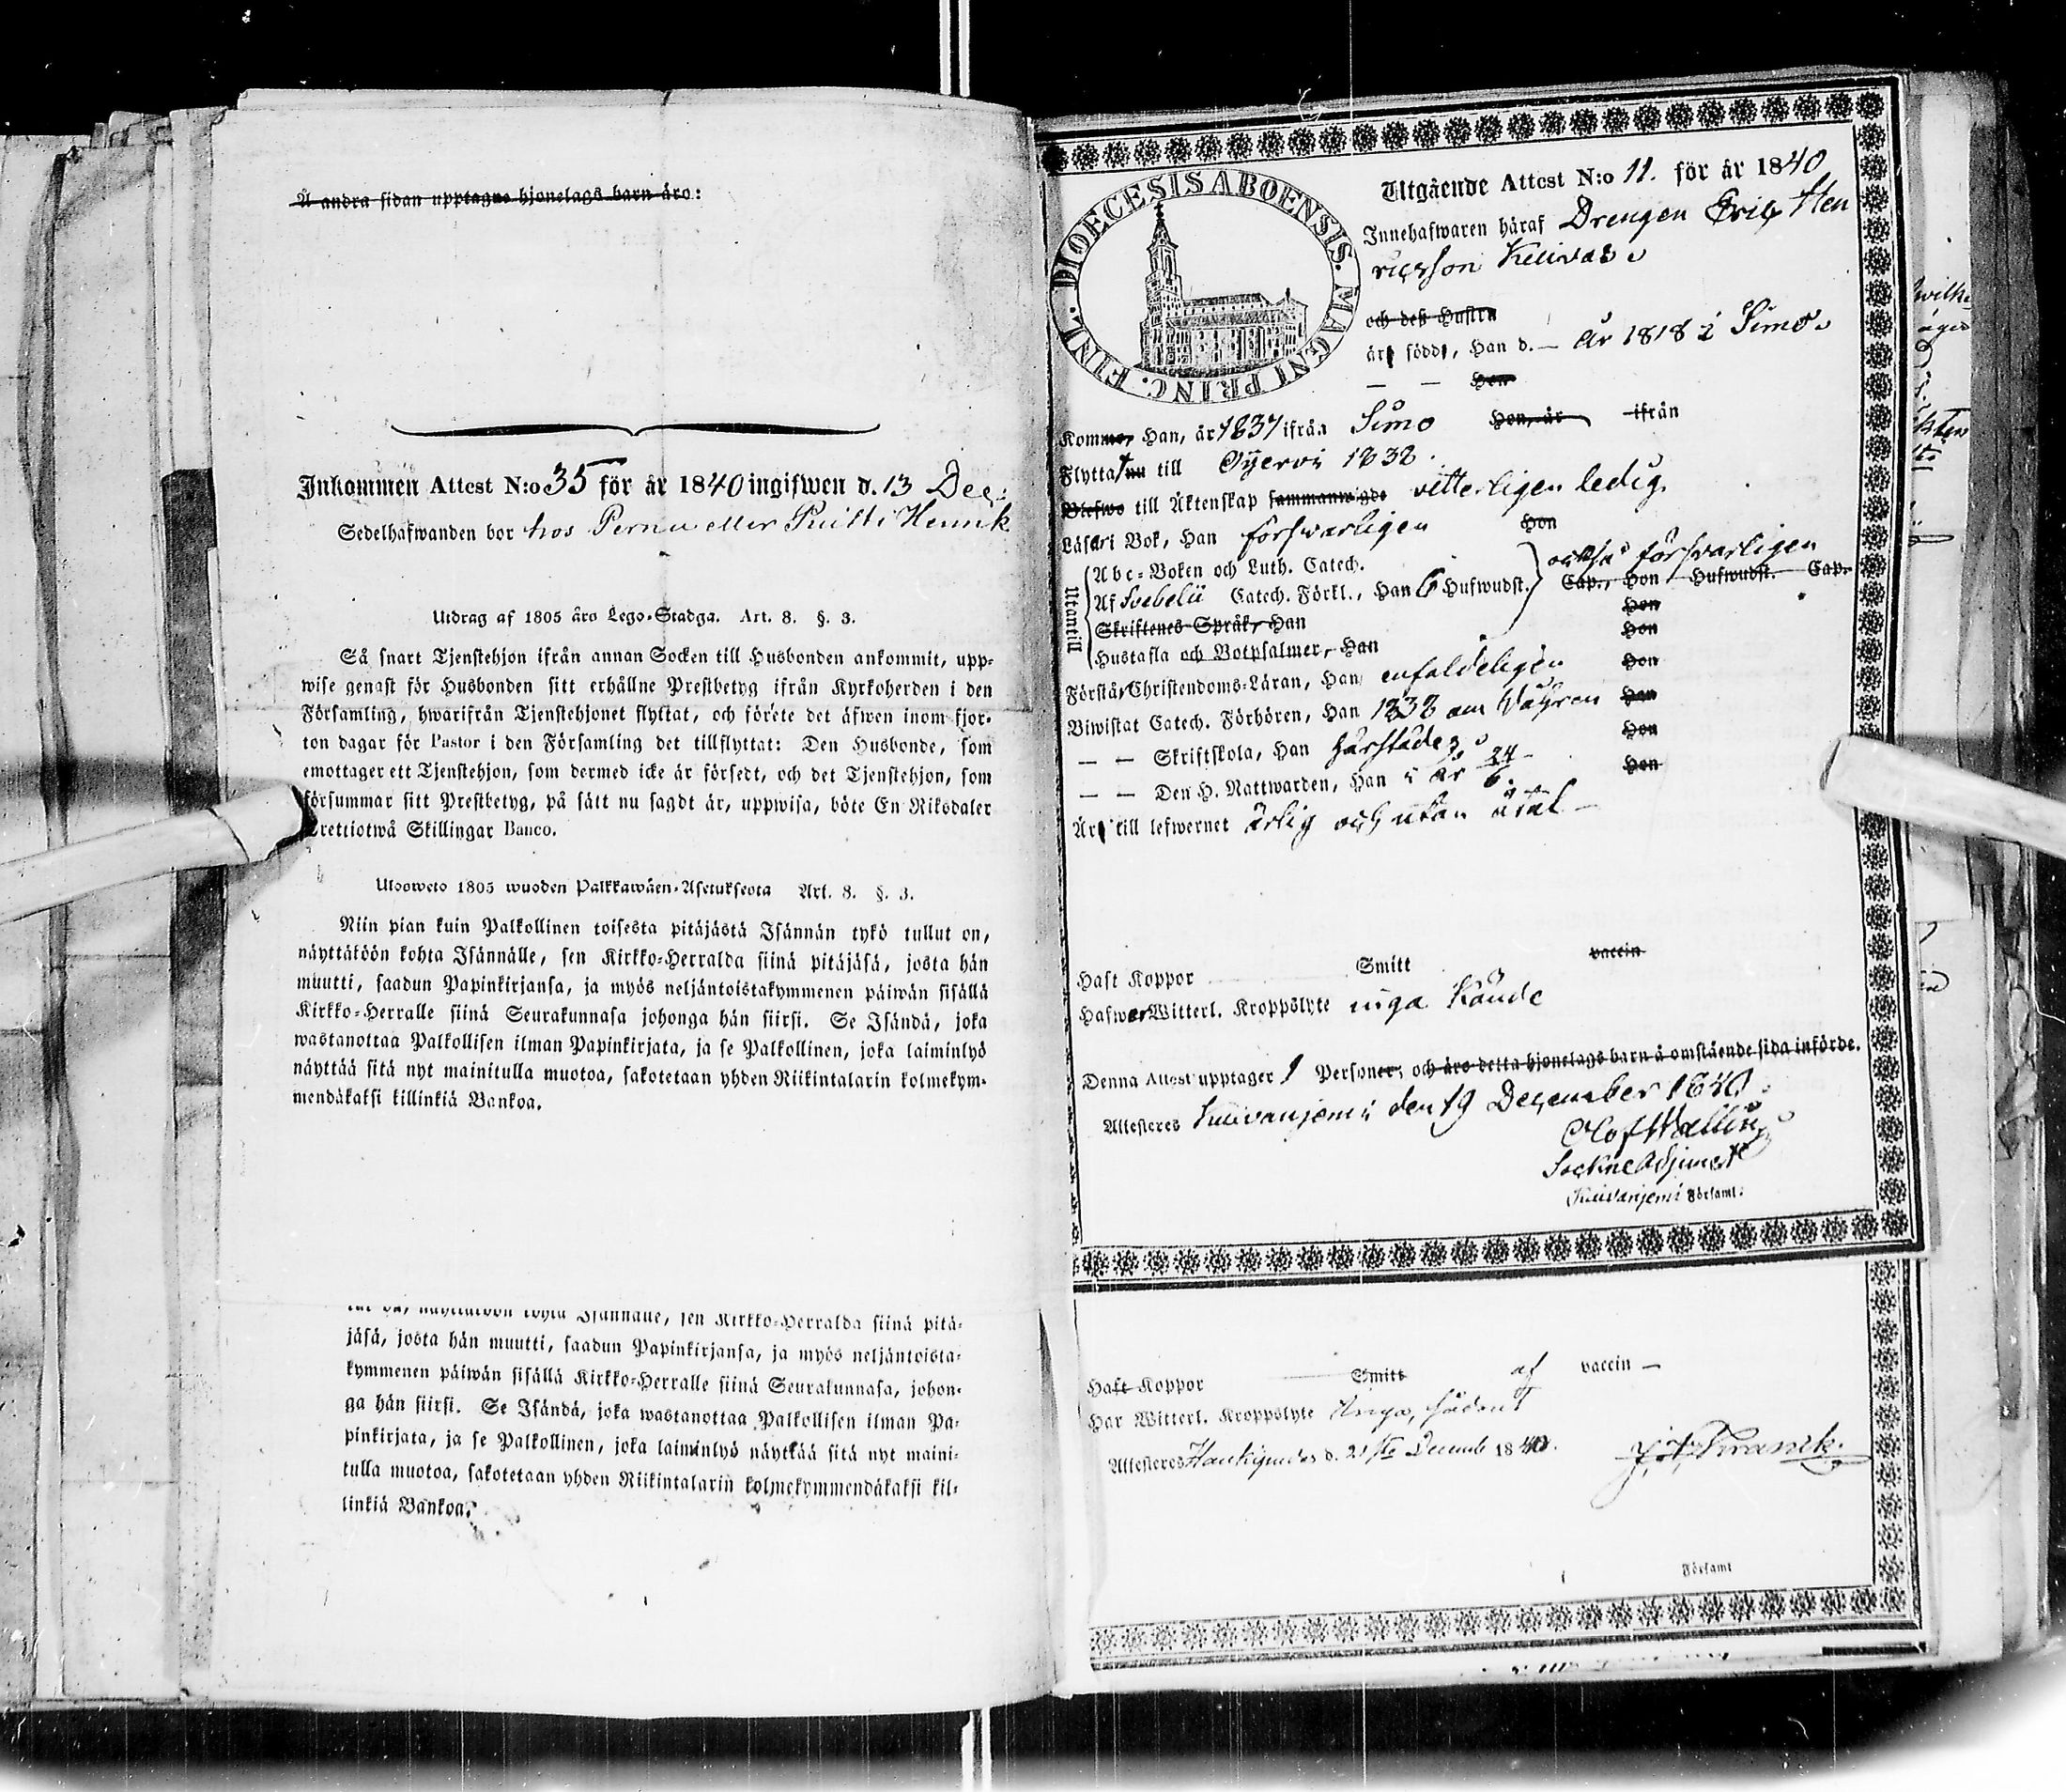 Å andra sidan upptagne hjonelags barn äro:
Inkommen Attest N:o 35 för år 1840 ingifwen d. 13 Dec:
Sedelhafwanden bor hos Pernu eller Puitti Henrik
Utdrag af 1805 års Lego-Stadga. Art. 8. §. 3.
Så snart Tjenstehjon ifrån annan Socken till Husbonden ankommit, upp-
wise genast för Husbonden sitt erhållne Prestbetyg ifrån Kyrkoherden i den
Församling, hwarifrån Tjenstehjonet flyttat, och förete det äfwen inom fjor-
ton dagar för Pastor i den Församling det tillflyttat: Den Husbonde, som
emottager ett Tjenstehjon, som dermed icke är försedt, och det Tjenstehjon, som
försummar sitt Prestbetyg, på sätt nu sagdt är, uppwisa, böte En Riksdaler
Trettiotwå Skillingar Banco.
Ulosweto 1805 wuoden Palkkawäen-Asetuksesta Art. 8. §. 3.
Niin pian kuin Palkollinen toisesta pitäjästä Isännän tykö tullut on,
näyttäköön kohta Isännälle, sen Kirkko-Herralda siinä pitäjäsä, josta hän
muutti, saadun Papinkirjansa, ja myös neljäntoistakymmenen päiwän sisällä
Kirkko-Herralle siinä Seurakunnasa johonga hän siirsi. Se Isändä, joka
wastanottaa Palkollisen ilman Papinkirjata, ja se Palkollinen, joka laiminlyö
näyttää sitä nyt mainitulla muotoa, sakotetaan yhden Riikintalarin kolmekym-
mendäkaksi killinkiä Bankoa.
tut on, näyttäköön kohta Isännälle, sen Kirkko-Herralda siinä pitä-
jäsä, josta hän muutti, saadun Papinkirjansa, ja myös neljäntoista-
kymmenen päiwän sisällä Kirkko-Herralle siinä Seurakunnasa, johon-
ga hän siirsi. Se Isändä, joka wastanottaa Palkollisen ilman Pa-
pinkirjata, ja se Palkollinen, joka laiminlyö näyttää sitä nyt maini-
tulla muotoa, sakotetaan yhden Riikintalarin kolmekymmendäkaksi kil-
linkiä Bankoa.
DIOECESIS ABOENSIS. MAGNI PRINC. FINL.
Utgående Attest N:o 11. för år 1840
Innehafwaren häraf Drengen Eric Hen
ricsson Kuivas
och deß Hustru
äro födde, Han d. — år 1818 i Simo
— — Hon
Kommo, Han, år 1837 ifrån Simo Hon, år ifrån
Flyttat nu till Oijervi 1838.
Blefwo till Äktenskap sammanwigde vitterligen ledig.
Läser i Bok, Han försvarligen Hon
Utantill
Abc-Boken och Luth. Catech. också försvarligen
Af Svebelii Catech. Förkl., Han 6 Hufwudst. Cap., Hon Hufwudst. Cap.
Skriftenes Språk, Han Hon
Hustafla och Botpsalmer, Han Hon
Förstår Christendoms-Läran, Han enfaldeligen Hon
Biwistat Catech. Förhören, Han 1838 om Våhren Hon
— — Skriftskola, Han härstädes Hon
— — Den H. Nattwarden, Han i år 24/6. Hon
Äro till lefwernet ärlig och utan åtal —
Haft Koppor Smitt vaccin
Hafwer Witterl. Kroppslyte inga kände
Denna Attest upptager 1 Personer, och äro detta hjonelags barn å omstående sida införde.
Attesteres Kuivaniemi den 19 December 1840.
Olof Wallin
Sockne Adjunct
Kuivaniemi Församl:
Haft Koppor Smitt af vaccin —
Har Witterl. Kroppslyte Inga,
Attesteres Haukipudas d. 21 Decemb 1840.
Franck.
Församl